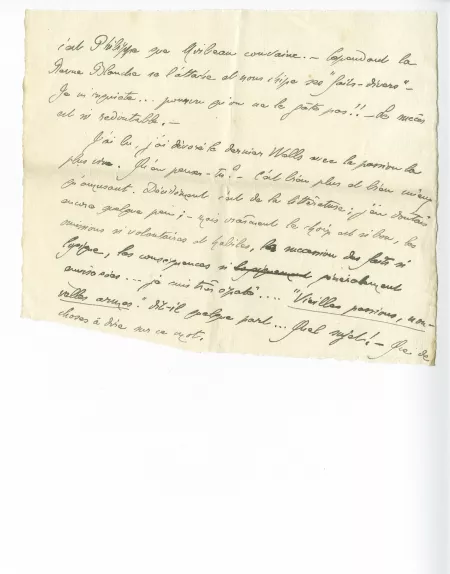 c'est Philippe que Mirbeau couvaine. — Cependant la
Revue Blanche se l'attache et nous chipe ses "faits-divers" —
Je m'inquiète... pourvu qu'on ne le gâte pas!! — le succès
est si redoutable. —
J'ai lu, j'ai dévoré le dernier Wells avec la passion la
plus vive. Qu'en penses-tu? — C'est bien plus et bien mieux
qu'amusant. Décidément c'est de la littérature; j'en doutais
encore quelque peu; — mais vraiment le choix est si bon, les
omissions si volontaires et habiles, la succession des faits si
logique, les conséquences si généralement
... je suis très épaté.... "Vieilles passions, nou-
velles armes." dit-il quelque part... Quel sujet! — Que de
choses à dire sur ce mot.